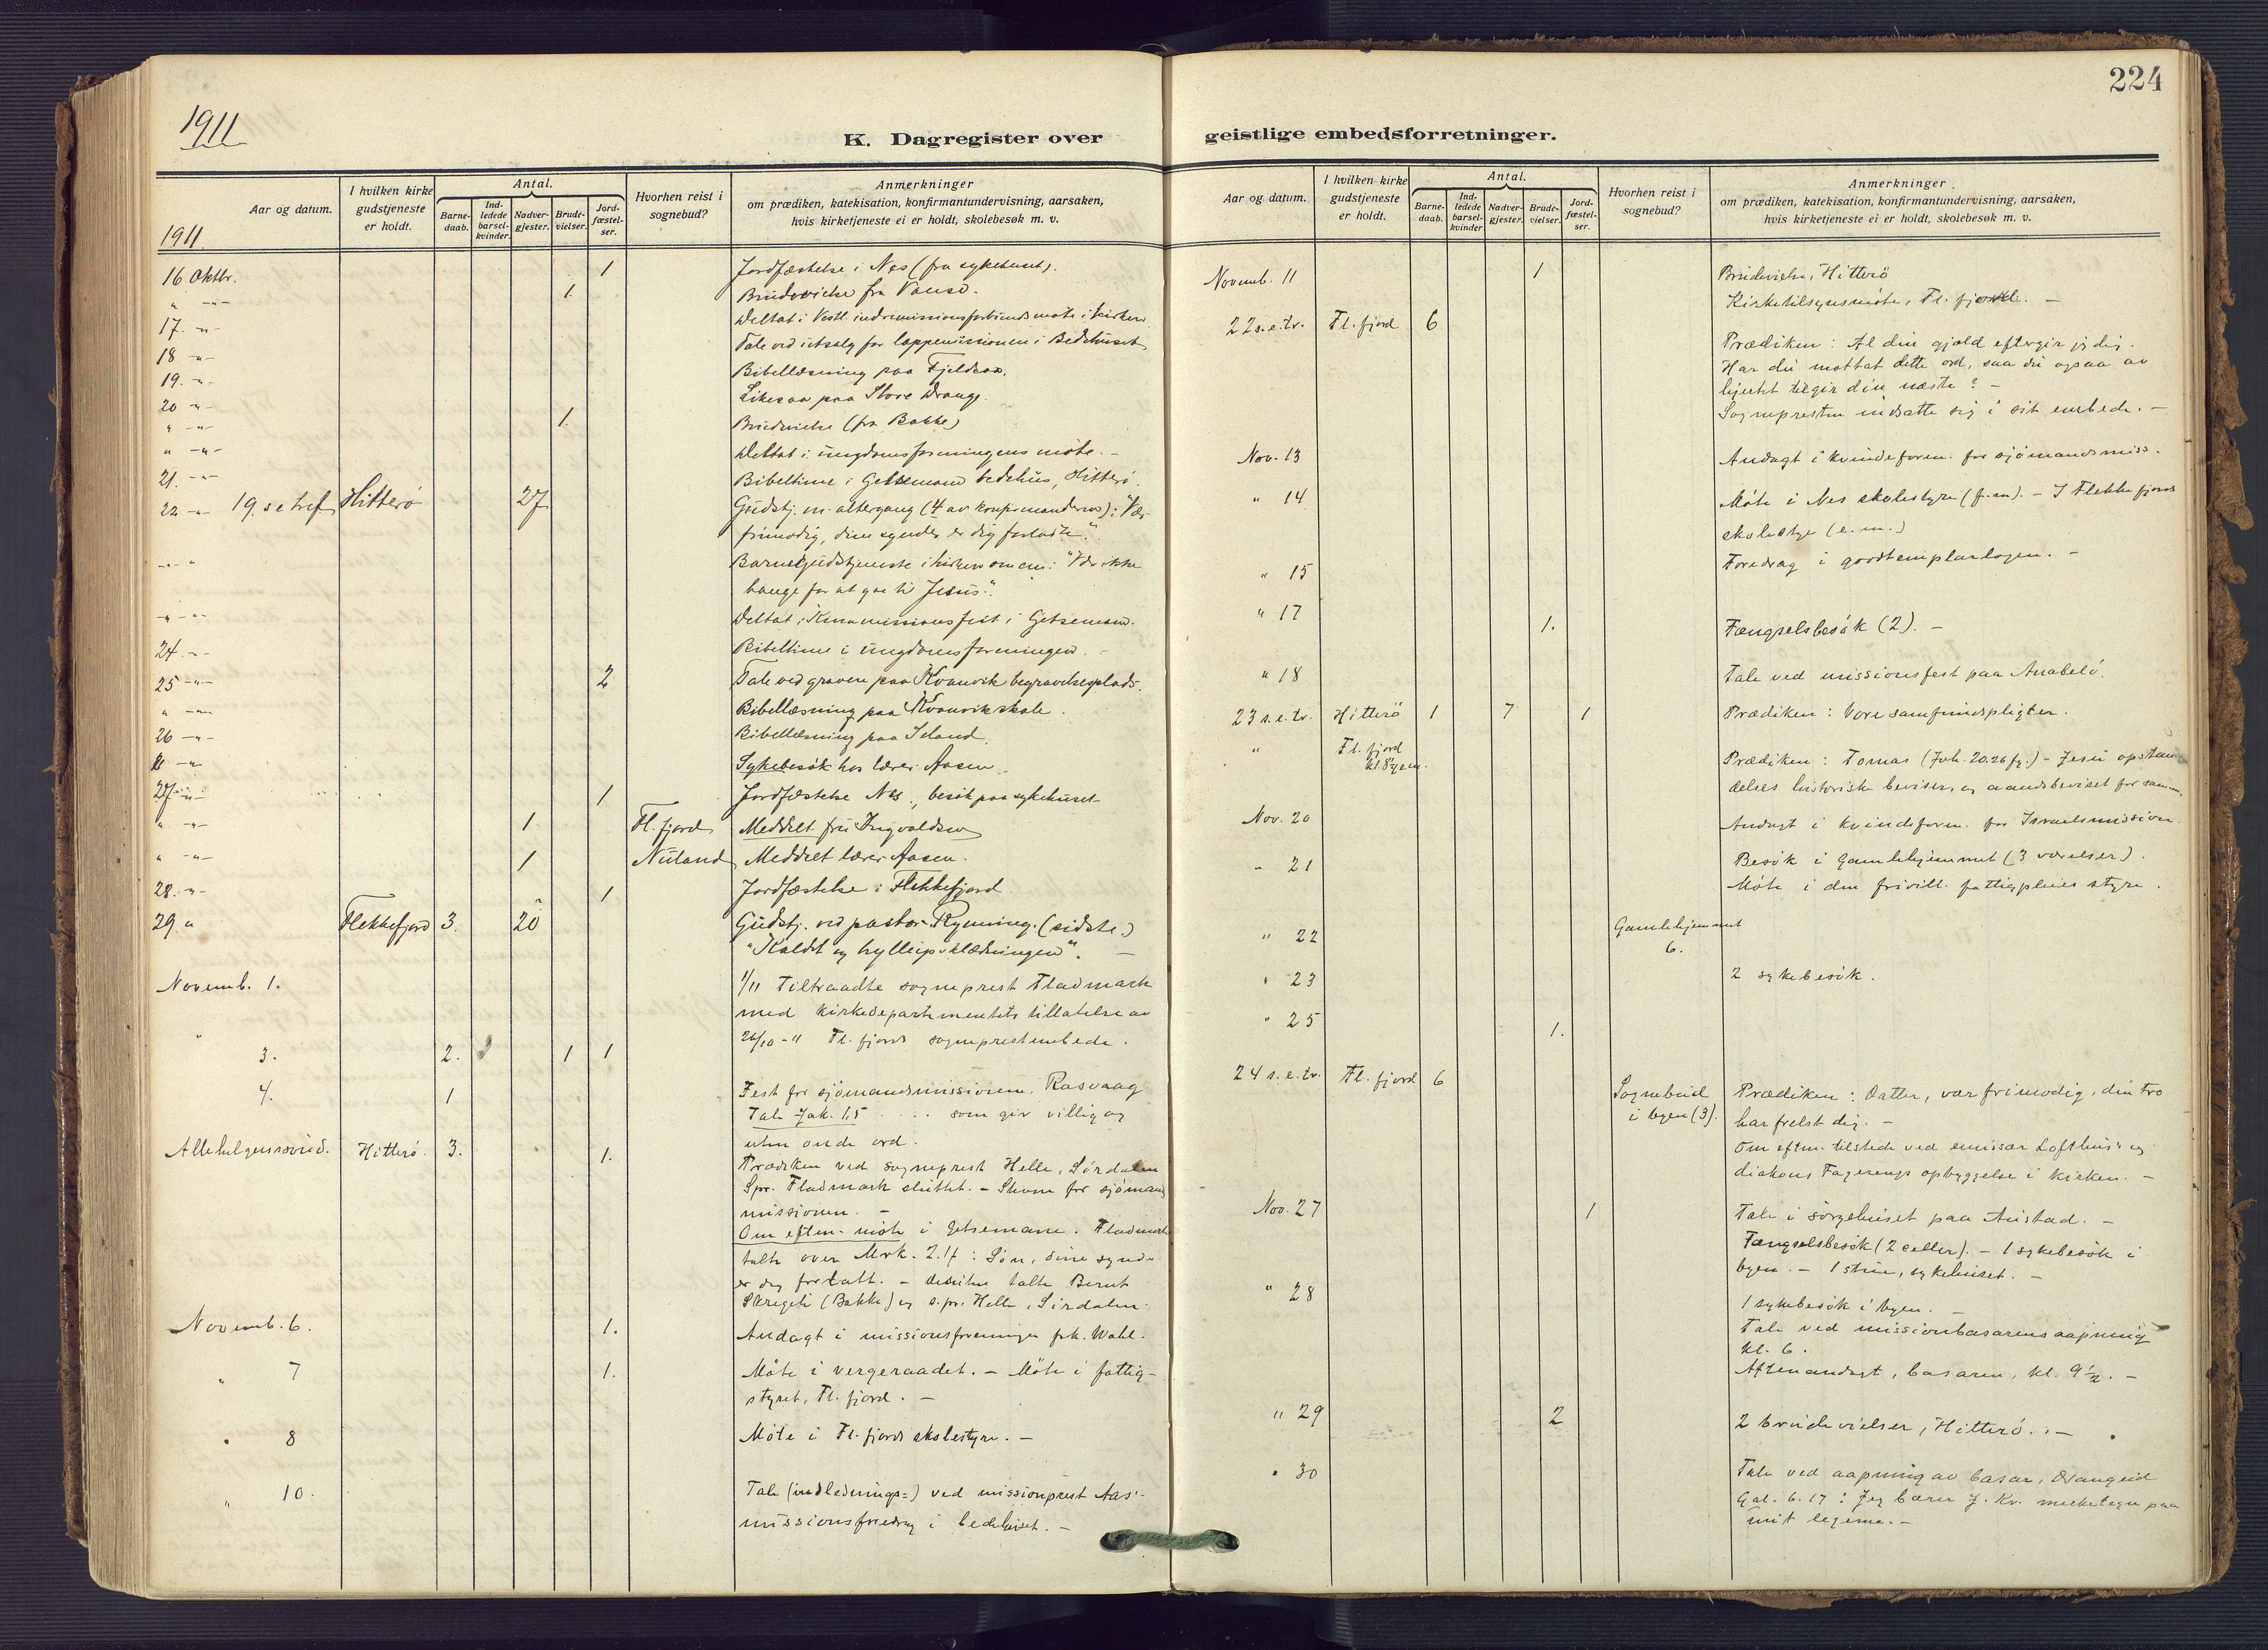 224
1911
K. Dagregister over
geistlige embedsforretninger.
Aar og datum.
I hvilken kirke gudstjeneste er holdt.
Antal.
Barne-daab.
Ind-ledede barsel-kvinder.
Nadver-gjester.
Brude-vielser.
Jord-fæstel-ser.
Hvorhen reist i sognebud?
Anmerkninger
om prædiken, katekisation, konfirmantundervisning, aarsaken,
hvis kirketjeneste ei er holdt, skolebesøk m. v.
1911
16 Oktbr. 1 Jordfæstelse i Nes (fra sykehuset).
" —"— 1. Brudevielse fra Vanse.
17. —"— Deltat i Vestl. indremissionsforbunds møte i kirken
18 —"— Tale ved utsalg for lappemissionen i Bedehuset
19. —"— Bibellæsning paa Fjeldsaa.
20 —"— Likesaa paa Store Drange.
" —"— 1. Brudevielse (fra Bakke)
" —"— Deltat i ungdomsforeningens møte. —
21. —"— Bibeltime i Getsemane bedehus, Hitterø.
22 —"— 19. s e tref. Hitterø 27 Gudstj. m. altergang (4 av konfirmanderne): "Vær
frimodig, dine synder er dig forladte."
—"— " Barnegudstjeneste i kirken om em: "Vær ikke
bange for at gaa til Jesus".
—"—"— Deltat i Kinamissionsfest i Getsemane.
24. —"— Bibeltime i ungdomsforeningen. —
25 —"— 2 Tale ved graven paa Kvanvik begravelsesplads.
" —"— Bibellæsning paa Kvanvik skole.
26 —"— Bibellæsning paa Seland.
" —"— Sykebesøk hos lærer Aasen
27 —"— 1 Jordfæstelse Nes., besøk paa sykehuset
" —"— 1 Fl. fjord Meddelt fru Ingvaldsen
" —"— 1 Nuland Meddelt lærer Aasen.
28. —"— 1 Jordfæstelse i Flekkefjord
29 " Flekkefjord 3. 20 Gudstj. ved pastor Rynning. (sidste.)
"Kaldet og bryllupsklædningen". —
Novemb. 1. 1/11 Tiltraadte sogneprest Fladmark
med kirkedepartementets tillatelse av
26/10 – 11 Fl. fjords sogneprestembede.
" 3. 2. 1 1
4. 1 Fest for sjømandsmissionen. Rasvaag
Tale Jak. 1.5 .... som gir villig og
uten onde ord.
Allehelgenssønd. Hitterø 3. 1. Prædiken ved sogneprest Helle, Sirdalen
Spr. Fladmark sluttet. – for sjømands
missionen. —
Om eftm. møte i Getsemane. Fladmark
talte over Mrk. 2.1f: Søn, dine synder
er dig forlatt. – desuten talte Bernt
(Bakke) og s.pr. Helle, Sirdalen.
Novemb. 6. 1. Andagt i missionsforeningen frk. Wahl.
" 7 1. Møte i vergeraadet. – Møte i fattig-
styret, Fl. fjord. —
" 8 Møte i Fl. fjords skolestyre. —
" 10. Tale (indlednings=) ved missionsprest Aas'
missionsforedrag i bedehuset. —
Aar og datum.
I hvilken kirke gudstjeneste er holdt.
Antal.
Barne-daab.
Ind-ledede barsel-kvinder
Nadver-gjester.
Brude-vielser.
Jord-fæstel-ser.
Hvorhen reist i sognebud?
Anmerkninger.
om prædiken, katekisation, konfirmantundervisning, aarsaken,
hvis kirketjeneste ei er holdt, skolebesøk m. v.
Novemb. 11 1 Brudevielse, Hitterø
Kirketilsynsmøte, Fl. fjord. —
22 s. e. tr. Fl. fjord 6 Prædiken: Al din gjæld eftergir jeg dig.
Har du mottat dette ord, saa du ogsaa av
hjertet tilgir din næste? —
Sognepresten indsatte sig i sit embede. —
Nov. 13 Andagt i kvindeforen. for sjømandsmiss.
" 14 Møte i Nes skolestyre (f.m). – I Flekkefjords
skolestyre (e. m.)
" 15 Foredrag i goodtemplarlogen. —
" 17 1. Fængselsbesøk (2). —
" 18 Tale ved missionsfest paa Anabelø.
23 s. e. tr. Hitterø 1 7 1 Prædiken: Vore samfundspligter.
" Fl. fjord Prædiken: Tomas (Joh. 20.26 fg.) – Jesu opstan
delses historiske beviser, og aandsbeviset for samm.
Nov. 20 Andagt i kvindeforen. for Israelsmission.
" 21 Besøk i Gamlehjemmet (3 værelser).
Møte i den frivill. fattigpleies styre.
" 22 Gamlehjemmet
6.
" 23 2 sykebesøk.
" 25 1.
24 s. e. tr. Fl. fjord 6 Sognebud Prædiken: Datter, vær frimodig, din tro
i byen (3). har frelst dig. —
Om eftm. tilstede ved emissær Lofthus og
diakon Fagerengs opbyggelse i kirken. —
Nov. 27 1 Tale i sørgehuset paa Austad. —
Fængselsbesøk (2 celler). – 1 sykebesøk i
byen. – 1 stue, sykehuset. —
" 28 1 sykebesøk i byen. —
Tale ved missionbasarens aapning
kl. 6.
Aftenandagt, basaren, kl. 9 1/2. —
" 29 2 2 brudevielser, Hitterø. . —
" 30 Tale ved aapning av basar, Drangeid
Gal. 6.17: Jeg bærer J. Kr. merketegn paa
mit legeme. —